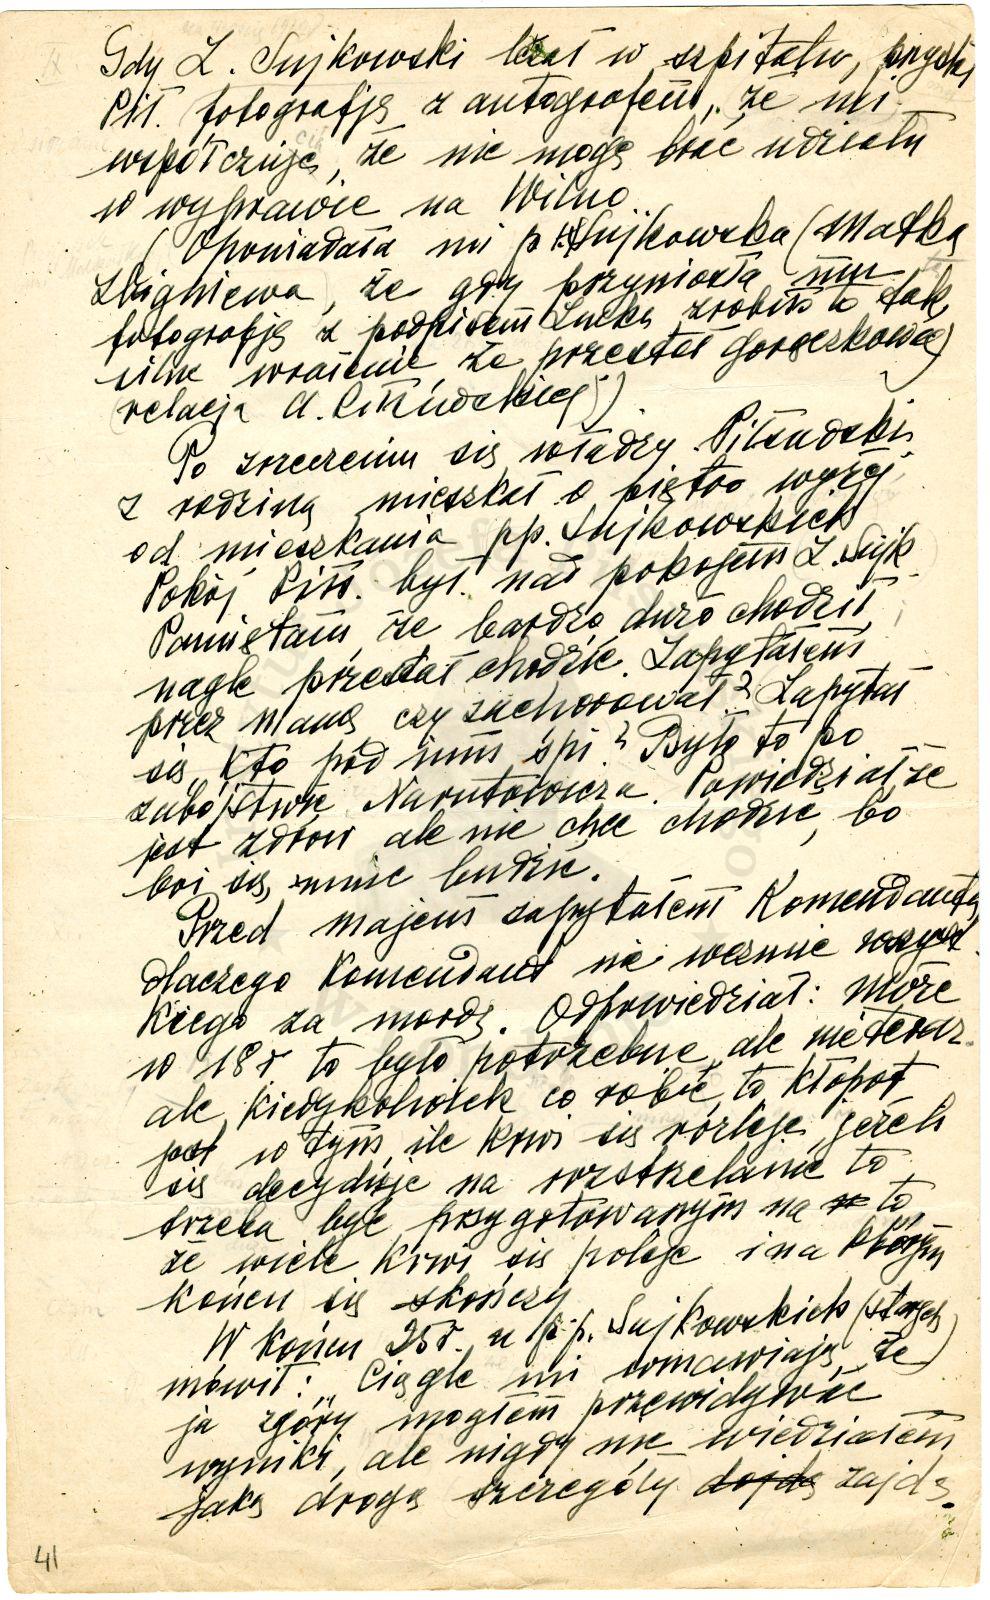 Gdy Z. Sujkowski leżał w szpitalu, przysłał
Pił. fotografję z autografem, że mi
współczuje, że nie mogę brać udziału
w wyprawie na Wilno
(Opowiadała mi p. Sujkowska (Matka
Zbigniewa), że gdy przyniosła mu
fotografję z podpisem Ziuka zrobiło to tak
silne wrażenie że przestał gorączkować)
(relacja A. Piłsudskiej)
Po zrzeczeniu się władzy Piłsudski
z rodziną mieszkał o piętro wyżej
od mieszkania pp. Sujkowskich
Pokój Piłs. był nad pokojem Z. Sujk
Pamiętam, że bardzo dużo chodził
nagle przestał chodzić. Zapytałem
przez Mamę czy zachorował? Zapytał
się kto pod nim śpi? Było to po
zabójstwie Narutowicza. Powiedział że
jest zdrów ale nie chce chodzić, bo
boi się mnie budzić.
Przed majem zapytałem Komendanta,
dlaczego Komendant nie weźmie wszyst
kiego za mordę. Odpowiedział: Może
w 18 r to było potrzebne, ale nie teraz.
ale kiedykolwiek co robić, to kłopot
jest w tym, ile krwi się rozleje, jeżeli
się decyduje na rozstrzelanie to
trzeba być przygotowanym na to,
że wiele krwi się poleje i na którym
końcu się skończy
W końcu 25 r. u p.p. Sujkowskich (starych)
mówił: "Ciągle mi wmawiają, że
ja zgóry mogłem przewidywać
wyniki, ale nigdy nie wiedziałem
jaką drogą szczegóły dojdą zajdą.
41